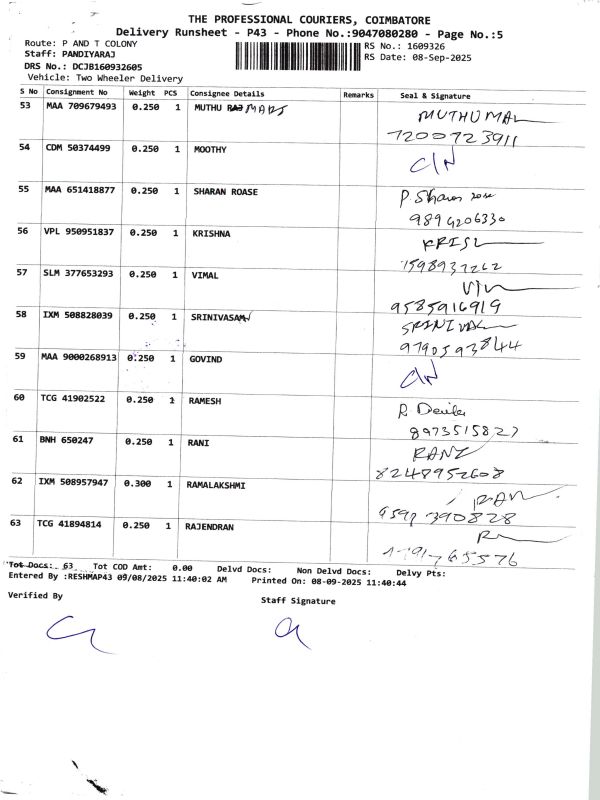 THE PROFESSIONAL COURIERS, COIMBATORE
Delivery Runsheet - P43 - Phone No.:9047080280 - Page No.:5
Route: P AND T COLONY
RS No.: 1609326
Staff: PANDIYARAJ
RS Date: 08-Sep-2025
DRS No.: DCJB160932605
Vehicle: Two Wheeler Delivery
S No Consignment No Weight PCS Consignee Details Remarks Seal & Signature
53 MAA 709679493 0.250 1 MUTHU MUTHUMAL
7200723911
54 CDM 50374499 0.250 1 MOOTHY C/N
55 MAA 651418877 0.250 1 SHARAN ROASE P. Sharan rose
9894206330
56 VPL 950951837 0.250 1 KRISHNA KRISL
57 SLM 377653293 0.250 1 VIMAL
9585916919
58 IXM 508828039 0.250 1 SRINIVASAN
9790593844
59 MAA 9000268913 0.250 1 GOVIND C/N
60 TCG 41902522 0.250 1 RAMESH R.
8973515827
61 BNH 650247 0.250 1 RANI RANI
8248952608
62 IXM 508957947 0.300 1 RAMALAKSHMI RAM
63 TCG 41894814 0.250 1 RAJENDRAN
Tot Docs: 63 Tot COD Amt: 0.00 Delvd Docs: Non Delvd Docs: Delvy Pts:
Entered By :RESHMAP43 09/08/2025 11:40:02 AM Printed On: 08-09-2025 11:40:44
Verified By Staff Signature